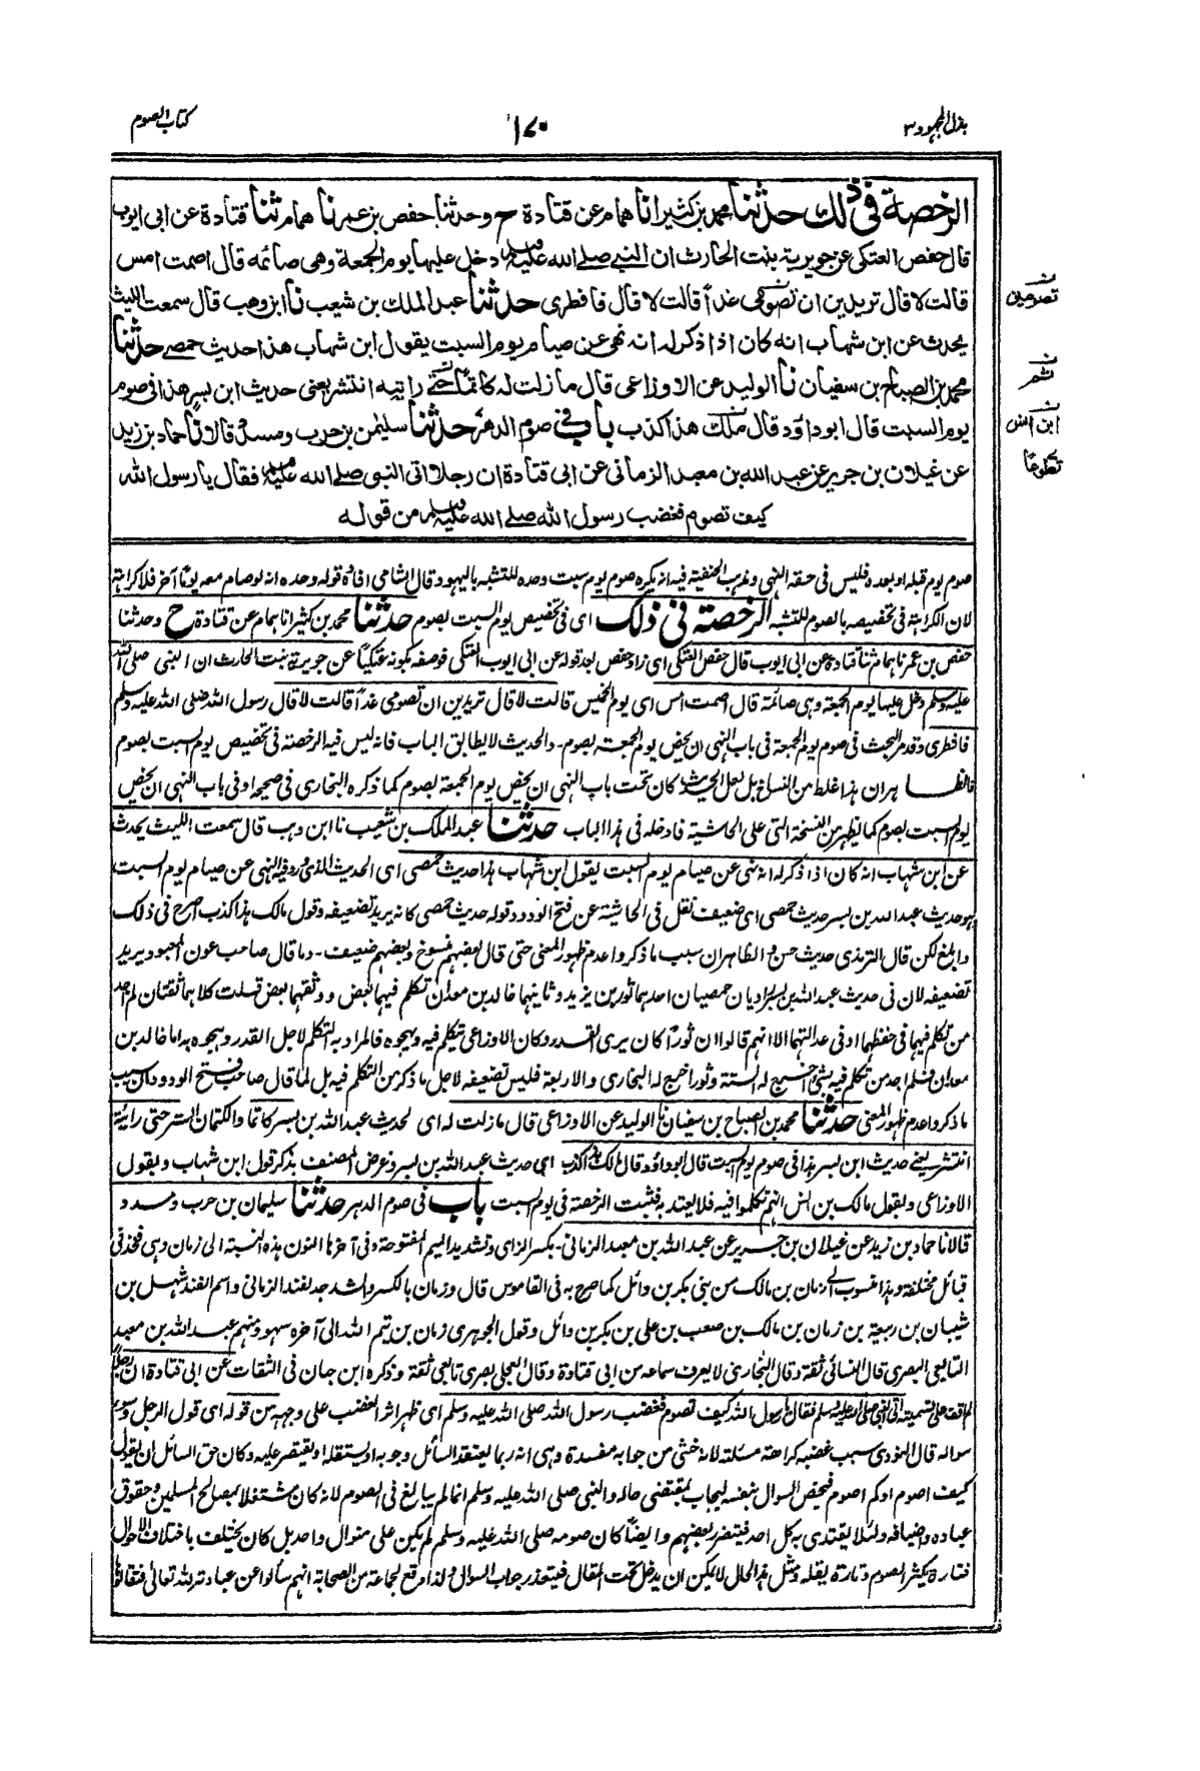 بذل المجهود ٣
١٧٠
كتاب الصوم
الرخصة في ذلك حدثنا محمد بن كثير انا همام عن قتادة ح وحدثنا حفص بن عمر نا همام ثنا قتادة عن ابى ايوب
قال حفص العتكى عن جويرية بنت الحارث ان النبي صلى الله عليه وسلم دخل عليها يوم الجمعة وهى صائمة قال اصمت امس
قالت لا قال تريدين ان تصومى غدا قالت لا قال فافطرى حدثنا عبد الملك بن شعيب نا ابن وهب قال سمعت الليث
يحدث عن ابن شهاب انه كان اذا ذكر له انه نهى عن صيام يوم السبت يقول ابن شهاب هذا حديث حمصى حدثنا
محمد بن الصباح بن سفيان نا الوليد عن الاوزاعى قال ما زلت له كاتما حتى رايته انتشر يعنى حديث ابن بسر هذا فى صوم
يوم السبت قال ابو داؤد قال ملك هذا كذب باب في صوم الدهر حدثنا سليمن بن حرب ومسدد قالا نا حماد بن زيد
عن غيلان بن جرير عن عبد الله بن معبد الزمانى عن ابى قتادة ان رجلا اتى النبى صلى الله عليه وسلم فقال يا رسول الله
كيف تصوم فغضب رسول الله صلى الله عليه وسلم من قوله
ن
تصومين
ن
شهر
ن
ابن انس
صوم يوم قبله او بعده فليس فى حقه النهى ومذهب الحنفية فيه انه يكره صوم يوم سبت وحده للتشبه باليهود وقال الشامى افاد قوله وحده انه لو صام معه يوما آخر فلا كراهة
لان الكراهة فى تخصيصه بالصوم للتشبه الرخصة في ذلك اى فى تخصيص يوم السبت بصوم حدثنا محمد بن كثير انا همام عن قتادة ح وحدثنا
حفص بن عمر نا همام ثنا قتادة عن ابى ايوب قال حفص العتكى اى زاد حفص بعد قوله عن ابى ايوب العتكى فوصفه بكونه عتكيا عن جويرية بنت الحارث ان النبى صلى الله
عليه وسلم دخل عليها يوم الجمعة وهى صائمة قال اصمت امس اى يوم الخميس قالت لا قال تريدين ان تصومى غدا قالت لا قال رسول الله صلى الله عليه وسلم
فافطرى وقد مر البحث فى صوم يوم الجمعة فى باب النهى ان يخص يوم الجمعة بصوم - والحديث لا يطابق الباب فانه ليس فيه الرخصة فى تخصيص يوم السبت بصوم
فالظاهر ان هذا غلط من النساخ بل لعل الحديث كان تحت باب النهى ان يخص يوم الجمعة بصوم كما ذكره البخارى فى صحيحه او فى باب النهى ان يخص
يوم السبت بصوم كما يظهر من النسخة التى على الحاشية فادخله فى هذا الباب حدثنا عبد الملك بن شعيب نا ابن وهب قال سمعت الليث يحدث
عن ابن شهاب انه كان اذا ذكر له انه نهى عن صيام يوم السبت يقول ابن شهاب هذا حديث حمصى اى الحديث الذى ورد فيه النهى عن صيام يوم السبت
هو حديث عبد الله بن بسر حديث حمصى اى ضعيف نقل فى الحاشية عن فتح الودود وقوله حديث حمصى كانه يريد تضعيفه وقول مالك هذا كذب اصرح فى ذلك
وابلغ لكن قال الترمذى حديث حسن والظاهر ان سبب ما ذكروا عدم ظهور المعنى حتى قال بعضهم منسوخ وبعضهم ضعيف - وما قال صاحب عون المعبود يريد
تضعيفه لان فى حديث عبد الله بن بسر راويان حمصيان احدهما ثور بن يزيد وثانيهما خالد بن معدان تكلم فيهما بعض ووثقهما بعض قلت كلاهما ثقتان لم اجد
من تكلم فيهما فى حفظهما او فى عدالتهما الا انهم قالوا ان ثورا كان يرى القدر وكان الاوزاعى يتكلم فيه ويهجوه فالمراد به التكلم لاجل القدر ويهجوه به اما خالد بن
معدان فلم اجد من تكلم فيه بشئ اخرج له الستة وثورا خرج له البخارى والاربعة فليس تضعيفه لاجل ما ذكر من التكلم فيه بل لما قال صاحب فتح الودود ان سبب
ما ذكروا عدم ظهور المعنى حدثنا محمد بن الصباح بن سفيان نا الوليد عن الاوزاعى قال ما زلت له اى لحديث عبد الله بن بسر كاتما والكتمان الستر حتى رايته
انتشر يعنى حديث ابن بسر هذا فى صوم يوم السبت قال ابو داؤد قال مالك هذا كذب اى حديث عبد الله بن بسر وغرض المصنف بذكر قول ابن شهاب وبقول
الاوزاعى وبقول مالك بن انس انهم تكلموا فيه فلا يعتد به فثبت الرخصة فى يوم السبت باب فى صوم الدهر حدثنا سليمان بن حرب ومسدد
قالا نا حماد بن زيد عن غيلان بن جرير عن عبد الله بن معبد الزمانى - بكسر الزاى وتشديد الميم المفتوحة وفى آخرها النون هذه النسبة الى زمان وهى فخذ فى
قبائل مختلفة وهذا منسوب الى زمان بن مالك من بنى بكر بن وائل كما صرح به فى القاموس قال وزمان بالكسر والشد جد لفند الزمانى واسم الفند شهل بن
شيبان بن ربيعة بن زمان بن مالك بن صعب بن على بن بكر بن وائل وقول الجوهرى زمان بن تيم الله الى آخره سهو ومنهم عبد الله بن معبد
التابعى البصرى قال النسائى ثقة وقال البخارى لا يعرف سماعه من ابى قتادة وقال العجلى بصرى تابعى ثقة وذكره ابن حبان فى الثقات عن ابى قتادة ان رجلا
لم اقف على تسميته اتى النبى صلى الله عليه وسلم فقال يا رسول الله كيف تصوم فغضب رسول الله صلى الله عليه وسلم اى ظهر اثر الغضب على وجهه من قوله اى قول الرجل وسوء
سواله قال النووى سبب غضبه كراهة مسئلته لانه خشى من جوابه مفسدة وهى انه ربما يعتقد السائل وجوبه او يستقله او يقتصر عليه وكان حق السائل ان يقول
كيف اصوم او كم اصوم فيخص السوال بنفسه ليجاب بمقتضى حاله والنبى صلى الله عليه وسلم انما لم يبالغ فى الصوم لانه كان مشتغلا بمصالح المسلمين وحقوق
عباده واضيافه ولئلا يقتدى به كل احد فيتضرر بعضهم وايضا كان صومه صلى الله عليه وسلم لم يكن على منوال واحد بل كان يختلف باختلاف الاحوال
فتارة يكثر الصوم وتارة يقله ومثل هذا الحال لا يمكن ان يدخل تحت المقال فيتعذر جواب السوال ولذا وقع لجماعة من الصحابة انهم سألوا عن عبادته لله تعالى فتقالوا